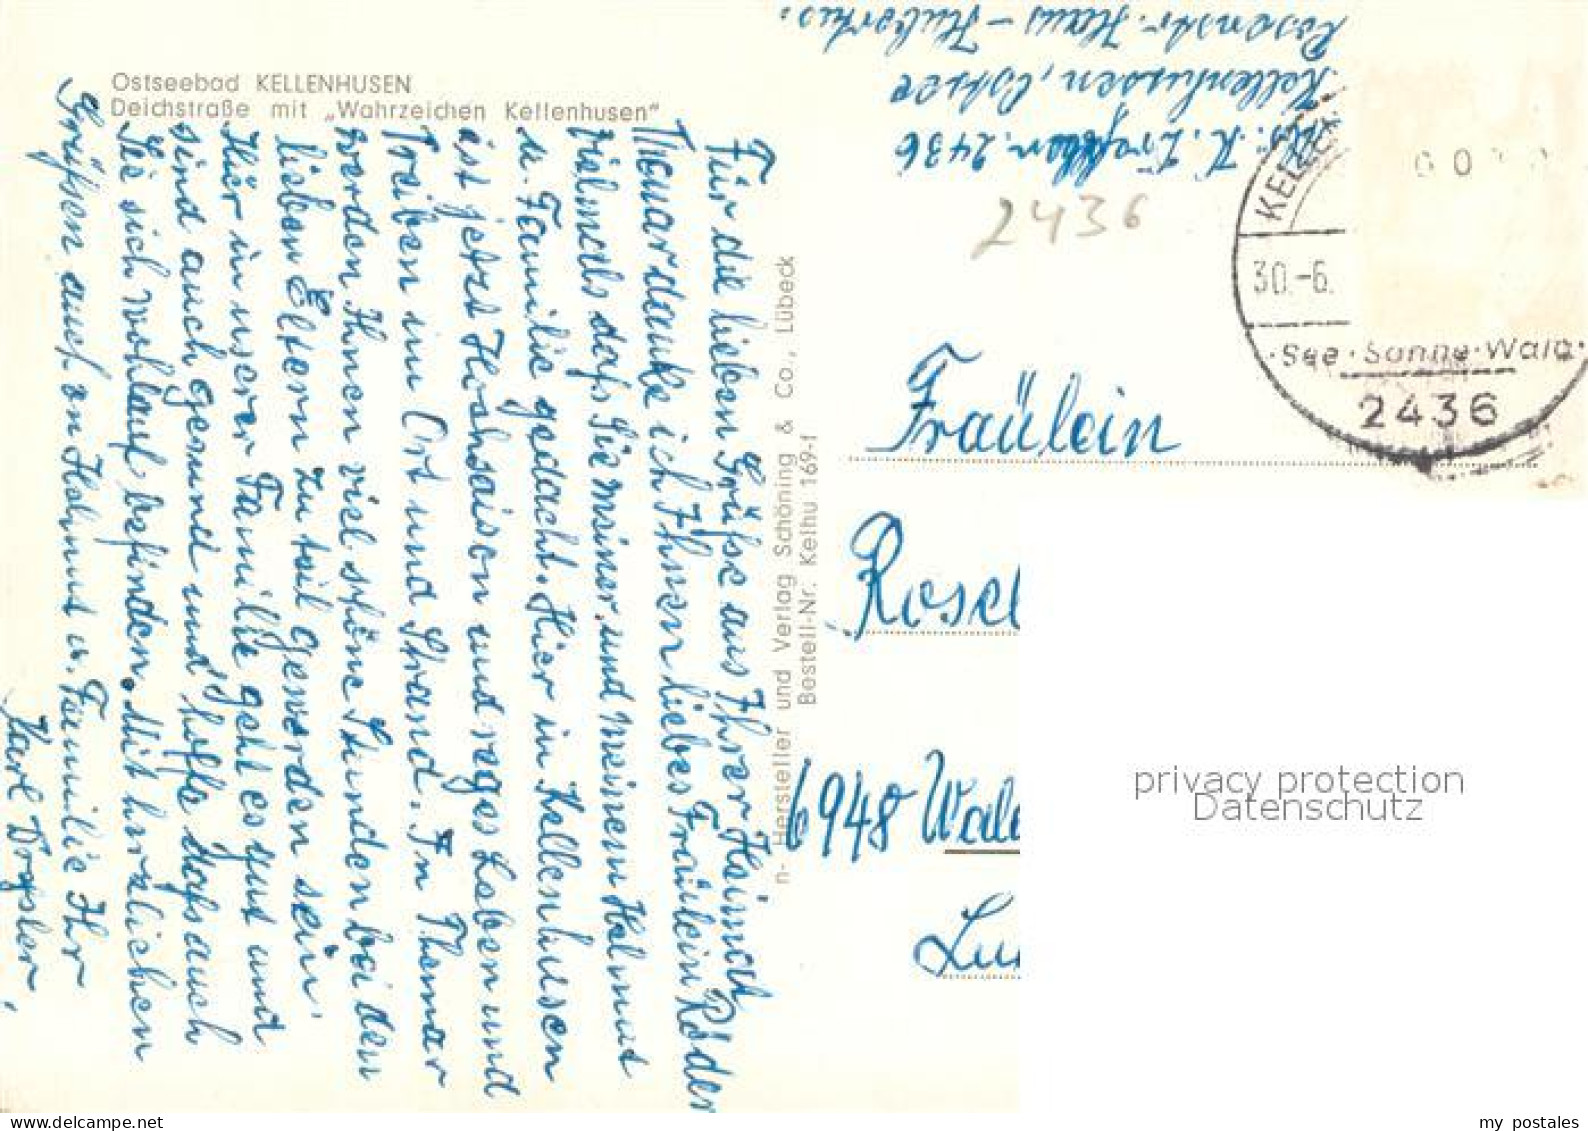 Ostseebad KELLENHUSEN
Deichstraße mit „Wahrzeichen Kellenhusen"
Für die lieben Grüße aus Ihrer Heimat
Themar danke ich Ihnen liebes Fräulein Röder
vielmals daß Sie meiner und meinem Helmut
u. Familie gedacht. Hier in Kellenhusen
ist jetzt Hochsaison und reges Leben und
Treiben im Ort und Strand. In Themar
werden Ihnen viel schöne Stunden bei den
lieben Eltern zu teil geworden sein.
Hier in userer Familie geht es gut und
sind auch gesund und hoffe daß auch
Sie sich wohlauf befinden. Mit herzlichen
Grüßen auch von Helmut u. Familie Ihr
Karl
n- Hersteller und Verlag Schöning & Co., Lübeck
Bestell-Nr. Kelhu 169-1
Abs. K. 2436
Kellenhusen, Ostsee
Rosenstr. Haus - Hubertus.
2436
30.-6.
See · Sonne · Wald ·
2436
Fräulein
Rosel
6948 Wald
privacy protection
Datenschutz
my postales